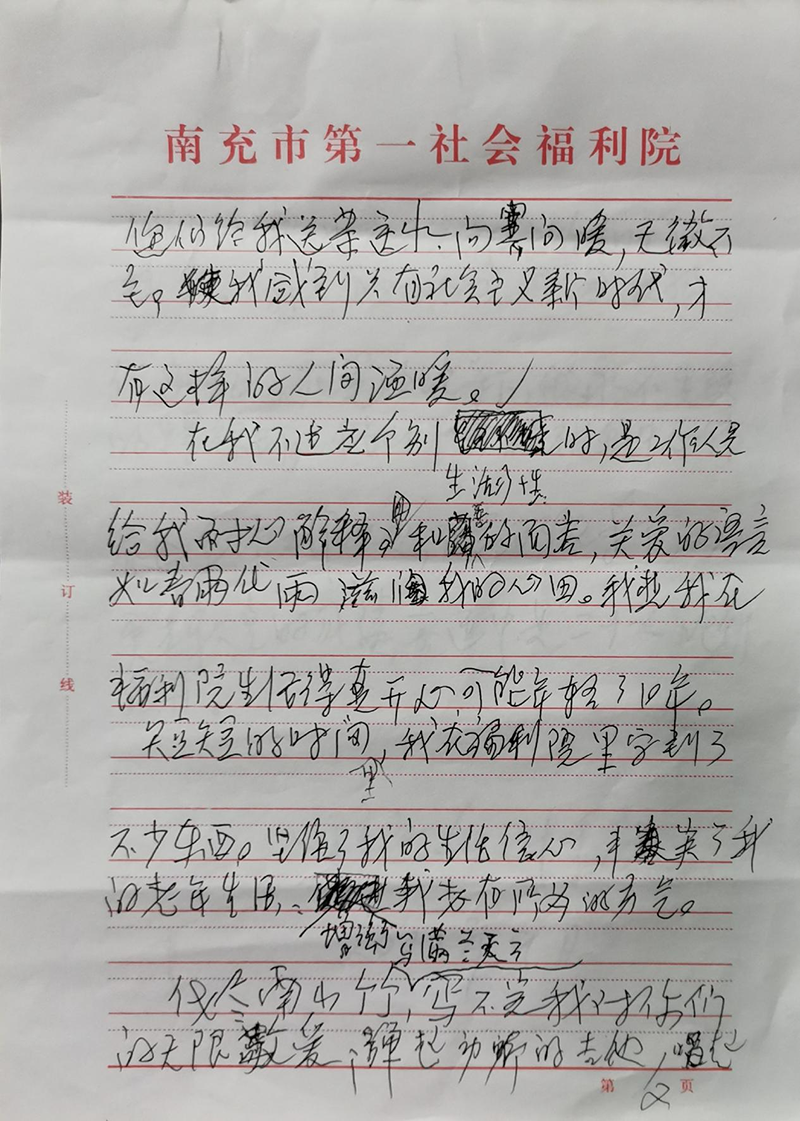 南充市第一社会福利院
他们给我送菜送水、问寒问暖，无微不
至，使我感到只有社会主义新时代，才
有这样的人间温暖。
在我不适应个别时，是工作人员
生活习惯
给我耐心解释，用和蔼的面容，关爱的语言
如春雨滋润我的心田。我想我在
福利院生活得真开心，可能年轻了10年。
短短的时间，我在福利院里学到了
不少东西。坚强了我的生活信心，丰富了我
的老年生活，我老有所为的勇气。
增强
写满兰天
伐尽南山竹，写不完我对你们
的无限敬爱，弹起动听的吉他，唱起
装
订
线
第2页